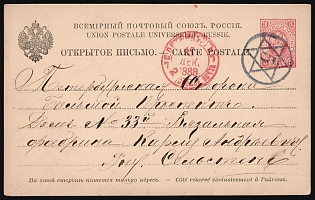 ВСЕМІРНЫЙ ПОЧТОВЫЙ СОЮЗ. РОССІЯ.
UNION POSTALE UNIVERSELLE. RUSSIE.
ОТКРЫТОЕ ПИСЬМО. — CARTE POSTALE.
ДЕК.
1888
Петербургская Сторона
Большой Проспектъ
Домъ № 33й Вязальная
фабрика Карлу Андреевичу
На этой сторонѣ пишется только адресъ. — Côté réservé exclusivement à l'adresse.